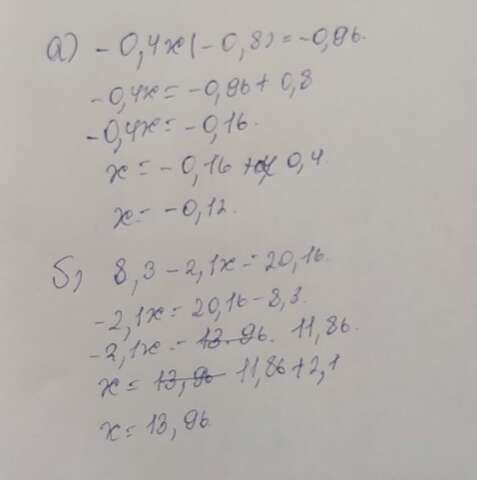 а) -0,4x(-0,8)=-0,96.
-0,4x=-0,96+0,8
-0,4x=-0,16.
x=-0,16+ 0,4.
x=-0,12.
б) 8,3-2,1x=20,16.
-2,1x=20,16-8,3.
-2,1x=13.96. 11,86.
x=13,96 11,86+2,1
x=13,96.